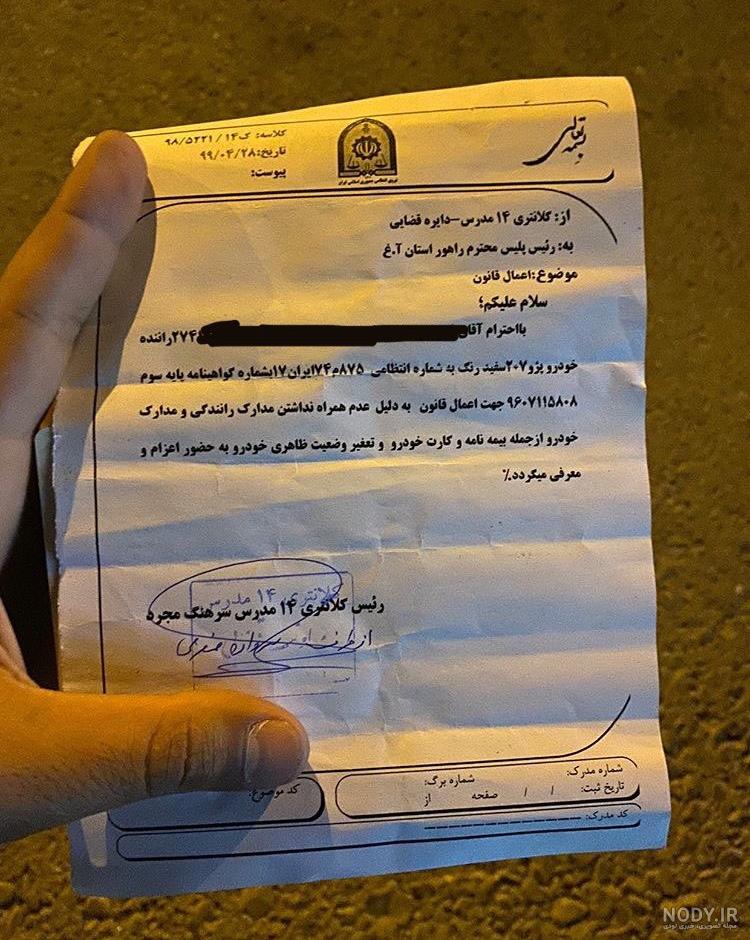 بسمه تعالی
کلاسه: ک۱۴ / ۹۸/۵۲۲۱
تاریخ: ۹۹/۰۴/۲۸
پیوست:
نیروی انتظامی جمهوری اسلامی ایران
از: کلانتری ۱۴ مدرس-دایره قضایی
به: رئیس پلیس محترم راهور استان آ.غ
موضوع: اعمال قانون
سلام علیکم؛
بااحترام آقای ۲۷۴ راننده
خودرو پژو۲۰۷سفید رنگ به شماره انتظامی ۸۷۵م۷۴ایران۱۷بشماره گواهینامه پایه سوم
۹۶۰۷۱۱۵۸۰۸ جهت اعمال قانون به دلیل عدم همراه نداشتن مدارک رانندگی و مدارک
خودرو ازجمله بیمه نامه و کارت خودرو و تعغیر وضعیت ظاهری خودرو به حضور اعزام و
معرفی میگردد٪
کلانتری ۱۴ مدرس
رئیس کلانتری ۱۴ مدرس سرهنگ مجرد
از طرف
شماره مدرک:
شماره برگ:
تاریخ ثبت: / /
صفحه از
کد موضوع:
کد مدرک:
NODY.IR
مجله تصویری، خبری نودی